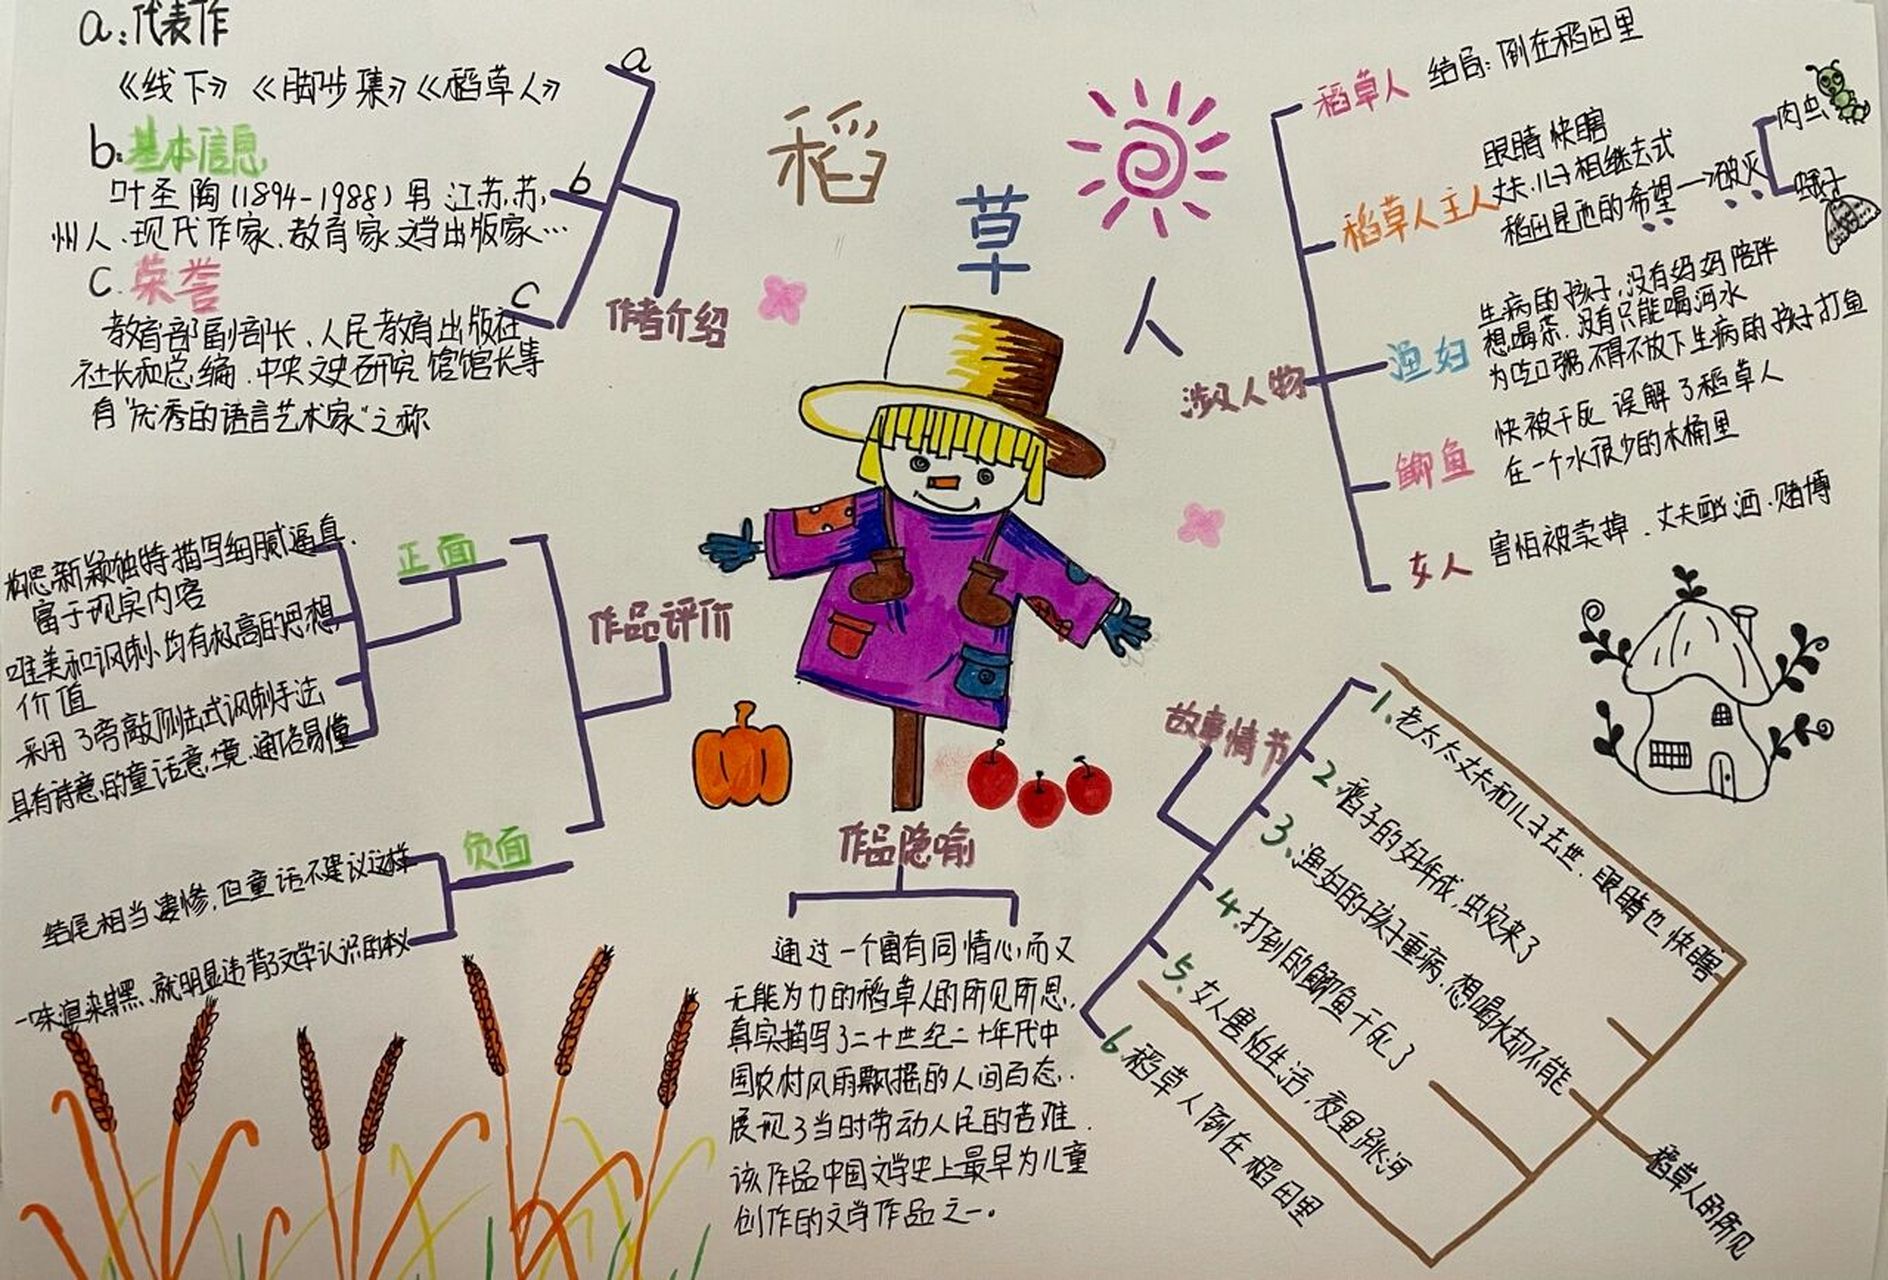 a:代表作
《线下》《脚步集》《稻草人》
b:基本信息
叶圣陶(1894-1988)男 江苏.苏.
州人.现代作家.教育家.文学出版家…
c.荣誉
教育部副部长、人民教育出版社
社长和总编.中央文史研究馆馆长等
有“优秀的语言艺术家”之称
a
b
c
作者介绍
稻
草
人
涉及人物
稻草人 结局:倒在稻田里
稻草人主人
眼睛快瞎
丈夫.儿子相继去式
稻田是她的希望→破灭
肉虫
蛾子
渔妇
生病的孩子,没有妈妈陪伴
想喝茶.没有只能喝河水
为吃口粥,不得不放下生病的孩子打鱼
鲫鱼
快被干死 误解了稻草人
在一个水很少的木桶里
女人 害怕被卖掉.丈夫酗酒.赌博
作品评价
正面
构思新颖独特描写细腻逼真.
富于现实内容
唯美和讽刺.均有极高的思想
价值
采用了旁敲侧击式讽刺手法
具有诗意的童话意境.通俗易懂
负面
结尾相当凄惨,但童话不建议这样
一味渲染黑.就明显违背了文学认识的本义
作品隐喻
通过一个富有同情心,而又
无能为力的稻草人的所见所思.
真实描写了二十世纪二十年代中
国农村风雨飘摇的人间百态.
展现了当时劳动人民的苦难.
该作品中国文学史上最早为儿童
创作的文学作品之一。
故事情节
1.老太太丈夫和儿子去世.眼睛也快瞎
2.稻子的好年成,虫灾来了
3.渔妇的孩子重病.想喝水却不能
4.打到的鲫鱼干死了
5.女人害怕生活,夜里跳河
6.稻草人倒在稻田里
稻草人的所见